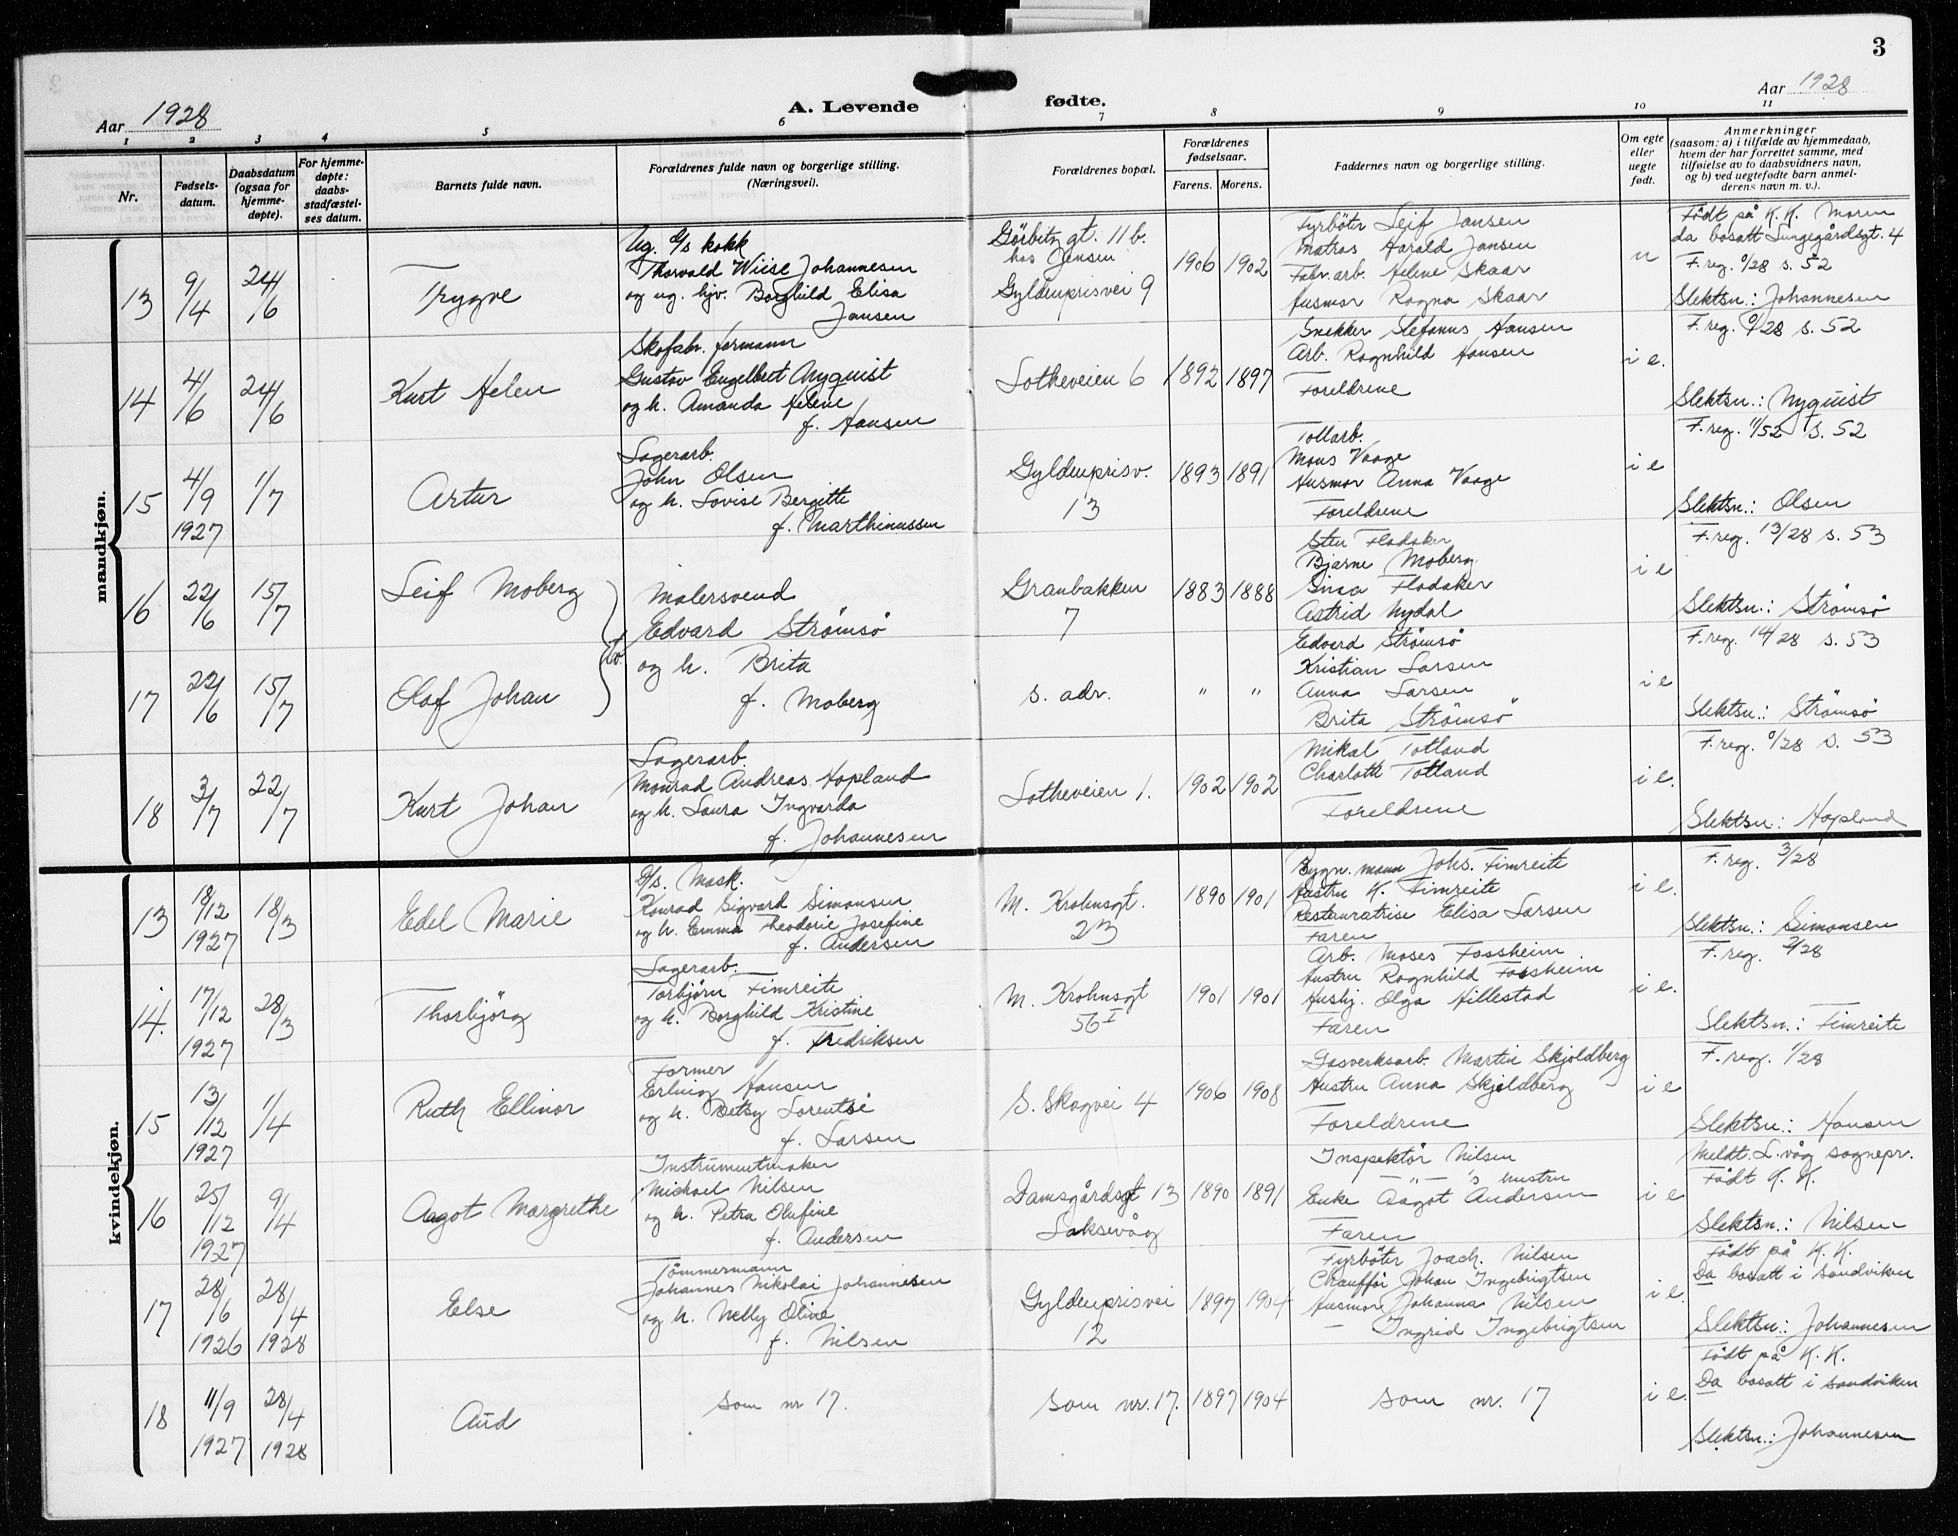 3
Aar 1928
A. Levende fødte.
Aar 1928
1 2 3 4 5 6 7 8 9 10 11
Nr.
Fødsels-
datum.
Daabsdatum
(ogsaa for
hjemme-
døpte).
For hjemme-
døpte:
daabs-
stadfæstel-
ses datum.
Barnets fulde navn.
Forældrenes fulde navn og borgerlige stilling.
(Næringsvei).
Forældrenes bopæl.
Forældrenes
fødselsaar.
Farens. Morens.
Faddernes navn og borgerlige stilling.
Om egte
eller
uegte
født.
Anmerkninger
(saasom: a) i tilfælde av hjemmedaab,
hvem der har forrettet samme, med
tilføielse av to daabsvidners navn,
og b) ved uegtefødte barn anmel-
derens navn m. v.).
mandkjøn.
13
9/4
24/6
Trygve
Ug. G/s kokk
Thorvald Wiise Johannesen
og ug. hjv. Borghild Elisa
Jansen
Görbitz gt. 11 b.
hos Jansen
Gyldenprisvei 9
1906 1902
Fyrböter Leif Jansen
Matros Harald Jansen
Fabr. arb. Helene Skaar
Husmor Ragna Skaar
u
Födt på K. K. Moren
da bosatt Lungegårdsgt. 4
F. reg. 0/28 s. 52
Slektsn.: Johannesen
14
4/6
24/6
Kurt Helen
Skofabr. formann
Gustav Engelbert Nyquist
og h. Amanda Helene
f. Hansen
Lotheveien 6
1892 1897
Snekker Stefanus Hansen
Arb. Ragnhild Hansen
Foreldrene
i e.
F. reg. 0/28 s. 52
Slektsn.: Nyquist
15
4/9
1927
1/7
Artur
Lagerarb.
John Olsen
og h. Lovise Bergitte
f. Marthinussen
Gyldenprisv.
13
1893 1891
Tollarb.
Mons Vaage
Husmor Anna Vaage
Foreldrene
i e
F. reg. 11/52 s. 52
Slektsn.: Olsen
16
22/6
15/7
Leif Moberg
Malersvend
Edvard Strömsö
og h. Brita
f. Moberg
Granbakken
7
1883 1888
Sten Flodaker
Bjarne Moberg
Flodaker
Astrid Nydal
i e
F. reg. 13/28 s. 53
Slektsn.: Strömsö
17
22/6
15/7
Olaf Johan
s. adr.
" "
Edvard Strömsö
Kristian Larsen
Anna Larsen
Brita Strömsö
i e
F. reg. 14/28 s. 53
Slektsn.: Strömsö
18
3/7
22/7
Kurt Johan
Lagerarb.
Monrad Andreas Hopland
og h. Laura Ingvarda
f. Johannesen
Lotheveien 1.
1902 1902
Mikal Totland
Charlotte Totland
Foreldrene
i e.
F. reg. 0/28 s. 53
Slektsn.: Hopland
kvindekjøn.
13
18/12
1927
18/3
Edel Marie
G/s. Mask.
Konrad Sigvard Simonsen
og h. Emma Theodorie Josefine
f. Andersen
M. Krohnsgt.
23
1890 1901
Bygn. mann Johs. Fimreite
Hustru K. Fimreite
Restauratrise Elisa Larsen
Faren
i e.
F. reg. 3/28
Slektsn.: Simonsen
14.
17/12
1927
28/3
Thorbjörg
Lagerarb.
Torbjörn Fimreite
og h. Borghild Kristine
f. Fredriksen
M. Krohnsgt
56 I
1901 1901
Arb. Moses Fossheim
Hustru Ragnhild Fossheim
Hushj. Olga Hillestad
Faren
i e.
F. reg. 2/28
Slektsn.: Fimreite
15
13/12
1927
1/4
Ruth Ellinor
Former
Erling Hansen
og h. Betsy Lorentse
f. Larsen
S. Skogvei 4
1906 1908
Gasverksarb. Martin Skjoldberg
Hustru Anna Skjoldberg
Foreldrene
i e
F. reg. 1/28
Slektsn.: Hansen
16
25/12
1927
9/4
Aagot Margrethe
Instrumentmaker
Michael Nilsen
og h. Petra Olufine
f. Andersen
Damsgårdsgt 13
Laksevåg
1890 1891
Inspektör Nilsen
— " — 's hustru
Enke Aagot Andersen
Faren
i e
Meldt. L.våg sognepr.
Födt K. K.
Slektsn.: Nilsen
17
28/6
1926
28/4
1928
Else
Tömmermann
Johannes Nikolai Johannesen
og h. Nelly Olive
f. Nilsen
Gyldenprisvei
12
1897 1904
Fyrböter Joach. Nilsen
Chaufför Johan Ingebrigtsen
Husmor Johanna Nilsen
— Ingrid Ingebrigtsen
i e.
Födt på K. K.
Da bosatt i Sandviken
Slektsn.: Johannesen
18
11/9
1927
28/4
1928
Aud
Som nr 17.
Som nr. 17.
1897 1904
Som nr. 17
i e.
Födt på K. K.
Da bosatt i Sandviken
Slektsn.: Johannesen